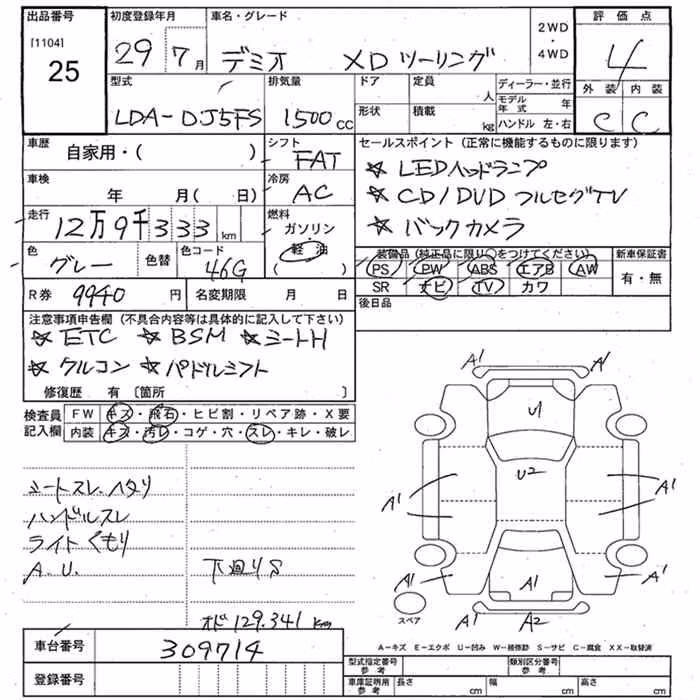 出品番号 初度登録年月 車名・グレード 2WD・4WD 評価点
[1104] 25 29 7月 デミオ XDツーリング 4
型式 排気量 ドア 定員 人 ディーラー・並行 外装 内装
LDA-DJ5FS 1500cc 形状 積載 kg モデル年式 年 ハンドル 左・右 C C
車歴 自家用・( ) シフト FAT セールスポイント(正常に機能するものに限ります)
☆LEDヘッドランプ
車検 年 月( 日) 冷房 AC ☆CD/DVD フルセグTV
走行 12万9千333km 燃料 ガソリン・軽油 ( ) ☆バックカメラ
色 グレー 色替 色コード 46G 装備品(純正品に限り○をつけてください) 新車保証書
PS PW ABS エアB AW 有・無
SR ナビ TV カワ
R券 9940円 名変期限 月 日 後日品
注意事項申告欄(不具合内容等は具体的に記入して下さい)
☆ETC ☆BSM ☆シートH
☆クルコン ☆パドルシフト
修復歴 有〔箇所 〕
検査員記入欄 FW キズ・飛石・ヒビ割・リペア跡・X要
内装 キズ・汚レ・コゲ・穴・スレ・キレ・破レ
シートスレ.ヘタリ
ハンドルスレ
ライトくもり
A.U. 下廻りS
オド129.341km
A1 A1
U1
U2
A1 A1
A1 A1 A1
スペア A1 A2
A-キズ E-エクボ U-凹み W-補修跡 S-サビ C-腐食 XX-取替済
車台番号 309714
登録番号
型式指定番号 参考 類別区分番号 参考
車庫証明用 参考 長さ cm 幅 cm 高さ cm